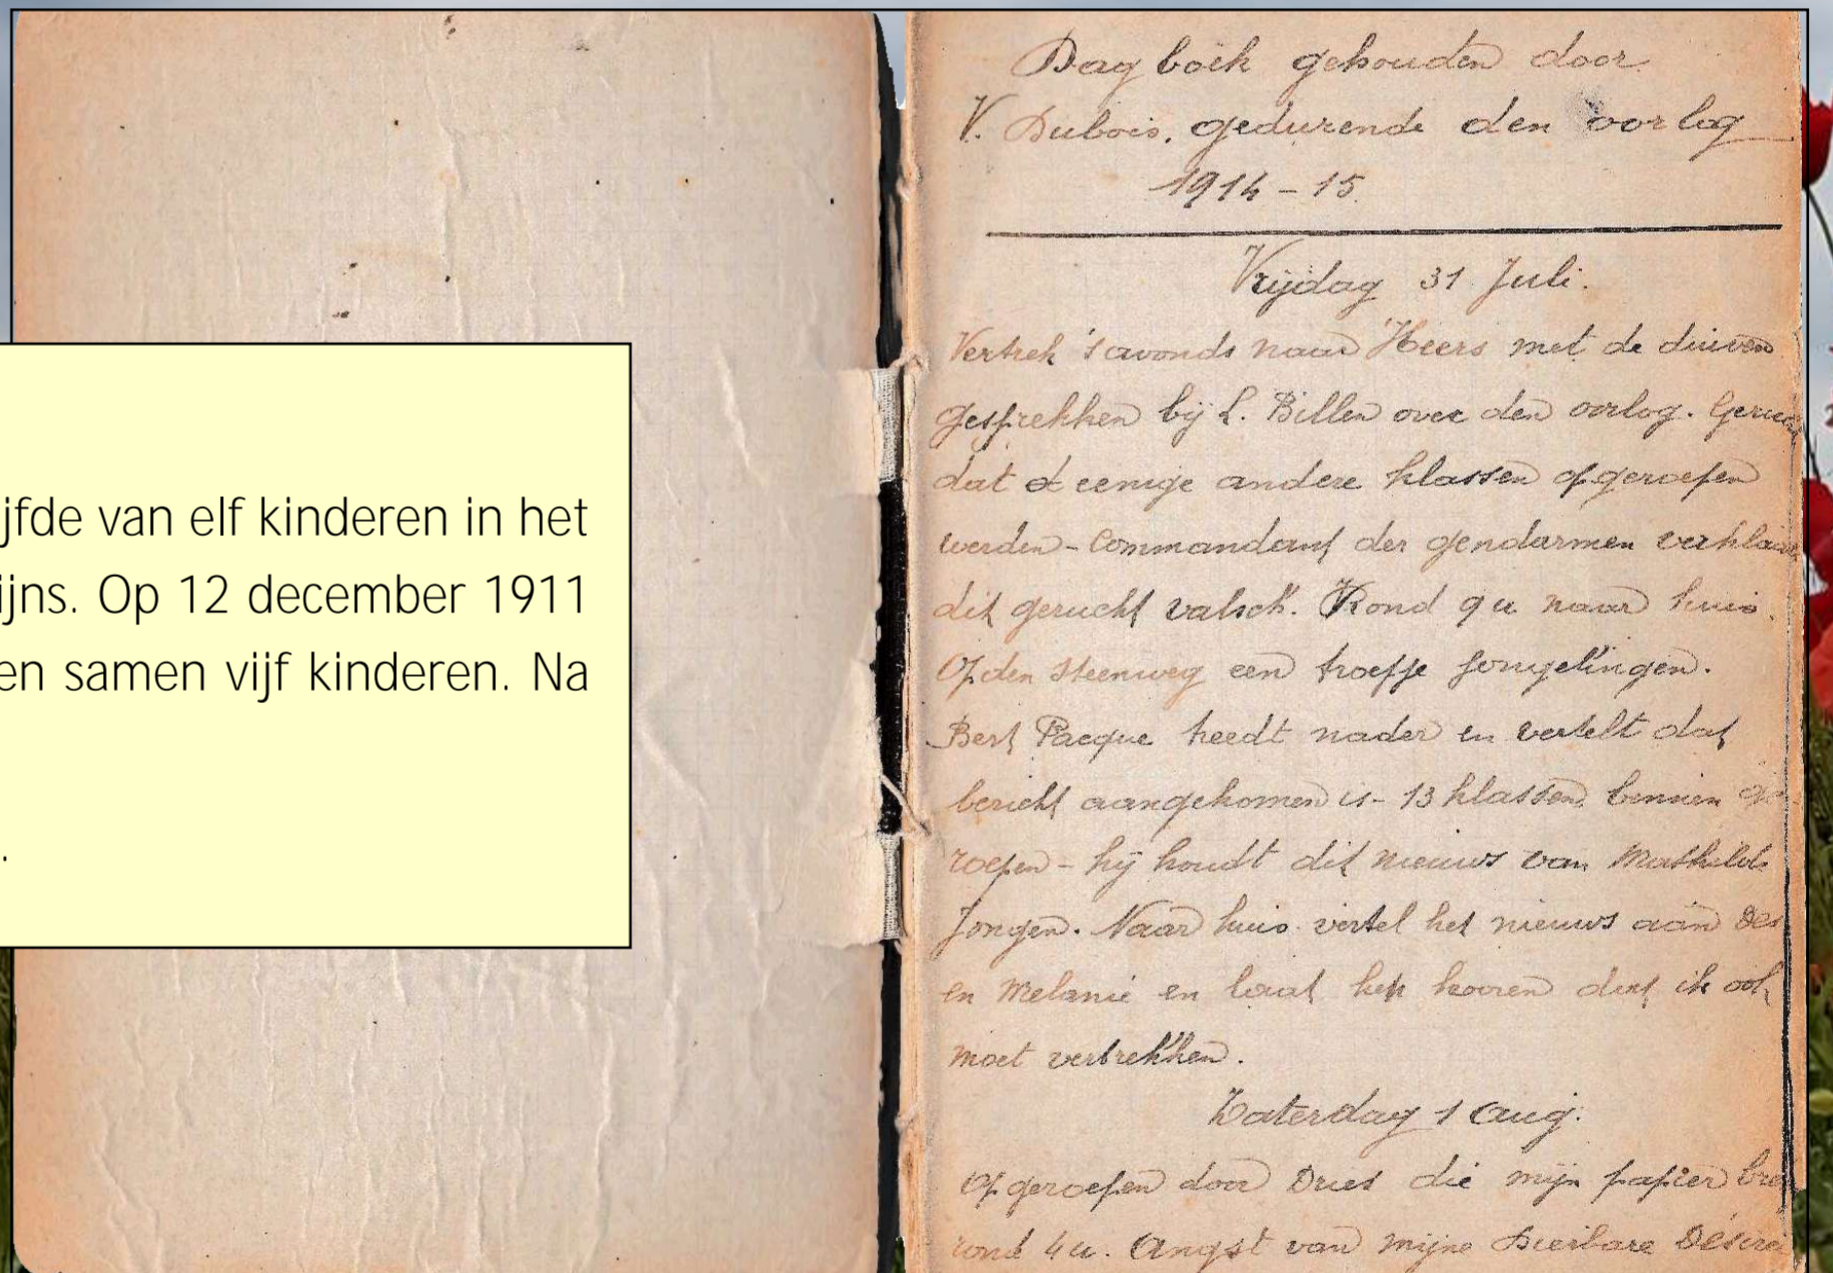 ijfde van elf kinderen in het
ijns. Op 12 december 1911
en samen vijf kinderen. Na
.
Dagboek gehouden door
V. Dubois, gedurende den oorlog
1914 - 15.
Vrijdag 31 Juli.
Vertrek 's avonds naar Heers met de duiven
gesprekken bij L. Billen over den oorlog.
dat eenige andere klassen opgeroepen
werden - Commandant der gendarmen
dit gerucht valsch. Rond 9 u naar huis.
Op den steenweg een troepje jongelingen.
Bert Pacque treedt nader en vertelt dat
bericht aangekomen is - 13 klassen binnen ge
roepen - hij houdt dit nieuws van
Jongen. Naar huis vertel het nieuws aan Des
en Melanie en laat hen hooren dat ik ook
moet vertrekken.
Zaterdag 1 Aug.
Opgeroepen door Dries die mijn papier
rond 4 u. Angst van mijne dierbare